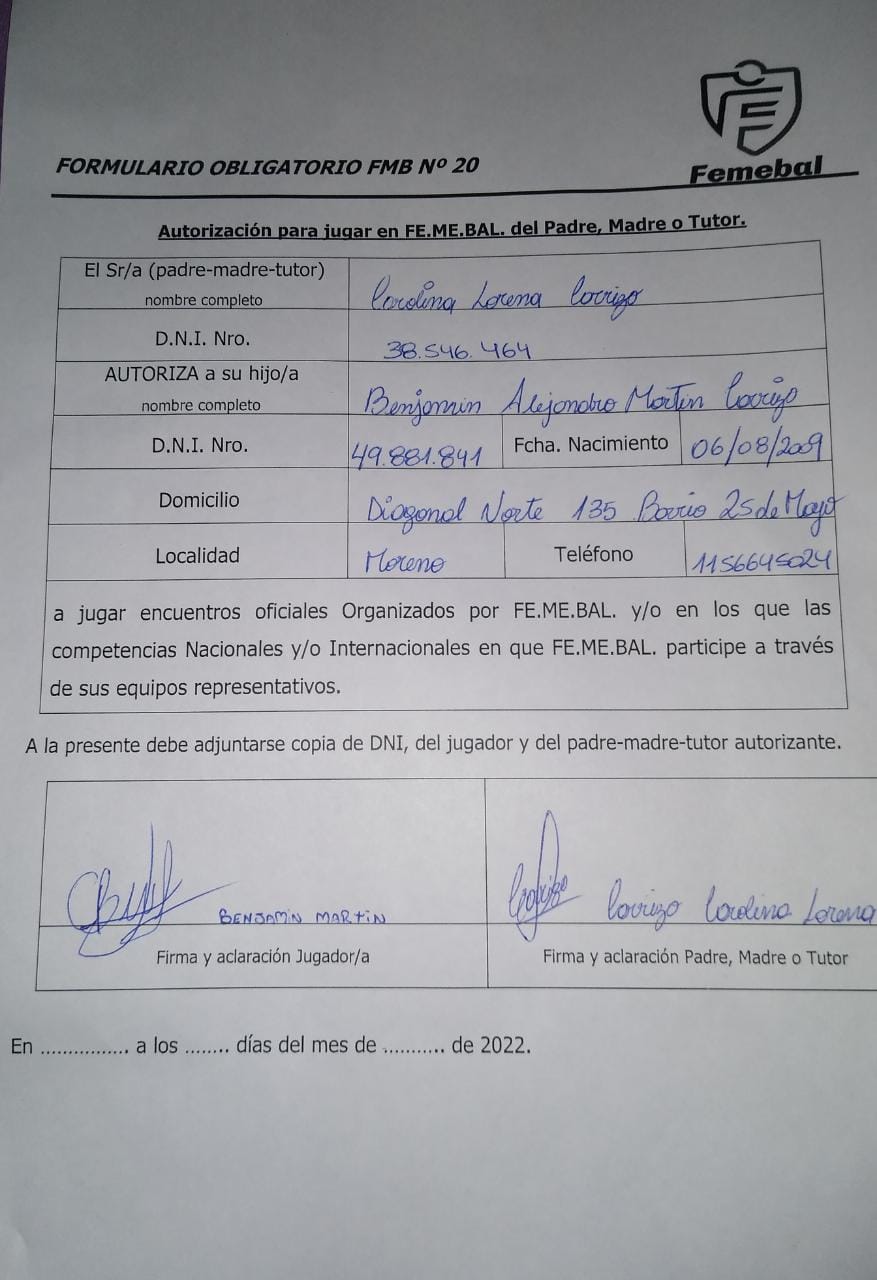 FORMULARIO OBLIGATORIO FMB Nº 20
Femebal
Autorización para jugar en FE.ME.BAL. del Padre, Madre o Tutor.
El Sr/a (padre-madre-tutor)
nombre completo
Carolina Lorena Carrizo
D.N.I. Nro.
38.546.464
AUTORIZA a su hijo/a
nombre completo
Benjamin Alejandro Martin Carrizo
D.N.I. Nro.
49.881.841
Fcha. Nacimiento
06/08/2009
Domicilio
Diagonal Norte 135 Barrio 25 de Mayo
Localidad
Moreno
Teléfono
1156645024
a jugar encuentros oficiales Organizados por FE.ME.BAL. y/o en los que las
competencias Nacionales y/o Internacionales en que FE.ME.BAL. participe a través
de sus equipos representativos.
A la presente debe adjuntarse copia de DNI, del jugador y del padre-madre-tutor autorizante.
BENJAMIN MARTIN
Carrizo Carolina Lorena
Firma y aclaración Jugador/a
Firma y aclaración Padre, Madre o Tutor
En ............... a los ........ días del mes de ........... de 2022.